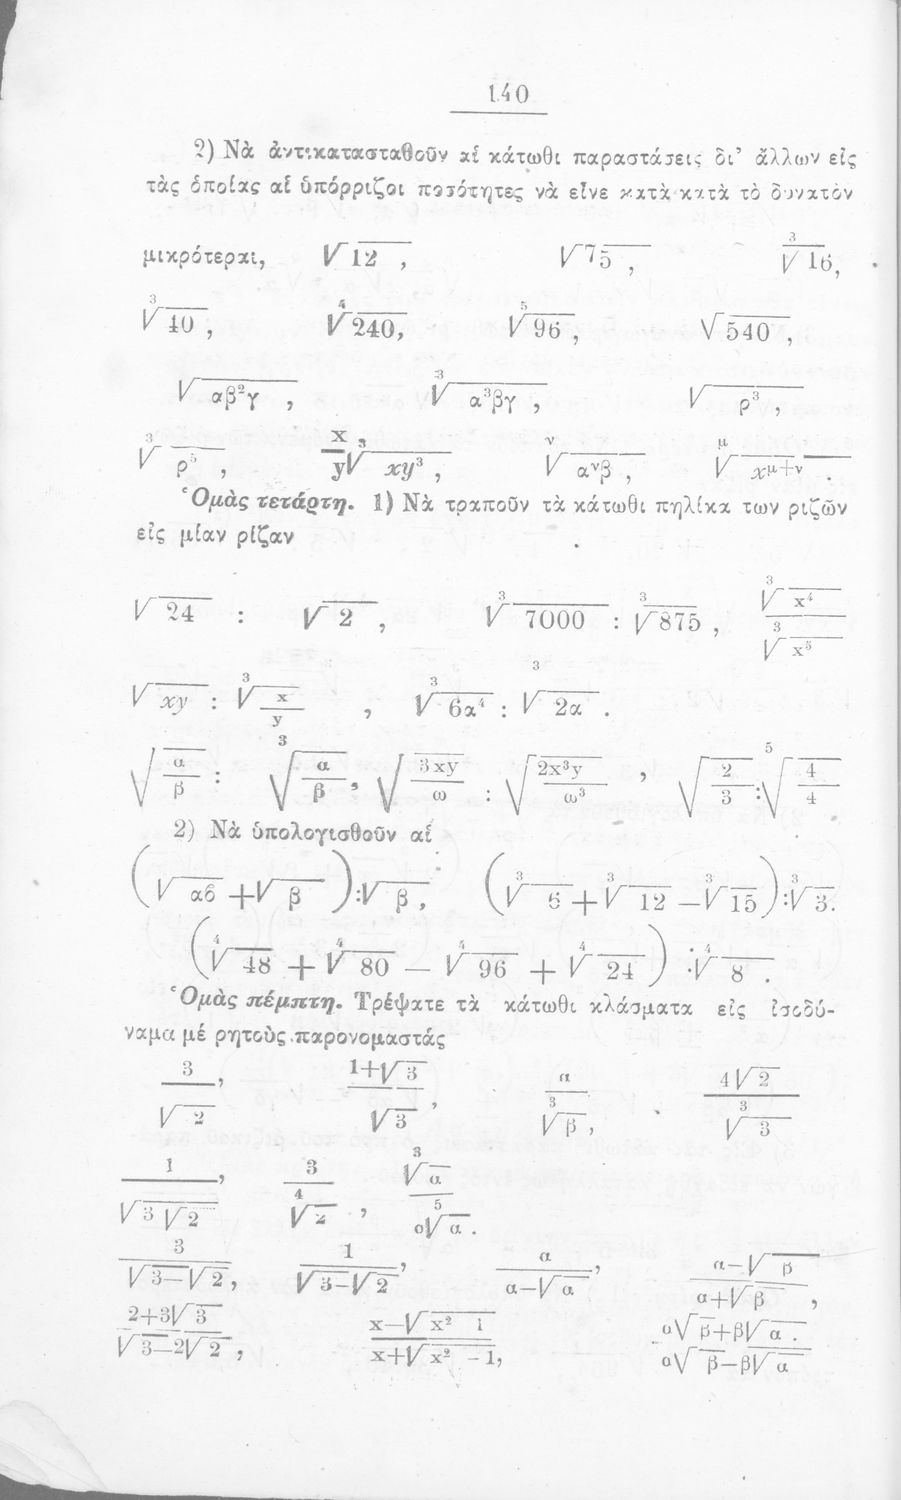 140
2) Νὰ ἀντικατασταθοῦν αἱ κάτωθι παραστάσεις δι' ἄλλων εἰς
τὰς ὁποίας αἱ ὑπόρριζοι ποσότητες νὰ εἶνε κατὰ κατὰ τὸ δυνατὸν
μικρότεραι, √12 , √75 , ∛16,
∛40 , ∜240, ⁵√96 , √540 ,
√αβ²γ , ∛α³βγ , √ρ³ ,
∛ρ⁵ , x/y ∛xy³ , ᵛ√αᵛβ , ᵘ√xᵘ⁺ᵛ .
Ὁμὰς τετάρτη. 1) Νὰ τραποῦν τὰ κάτωθι πηλίκα των ριζῶν
εἰς μίαν ρίζαν
√24 : √2 , ∛7000 : ∛875 , ∛x⁴ / ∛x⁵
√xy : ∛(x/y) , ∛6α⁴ : ∛2α .
√(α/β) : ∛(α/β) , √(3xy/ω) : √(2x³y/ω³) , √(2/3) : ⁵√(4/4)
2) Νὰ ὑπολογισθοῦν αἱ
(√αβ + √β) : √β , (∛6 + ∛12 — ∛15) : ∛3.
(∜48 + ∜80 — ∜96 + ∜24) : ∜8 .
Ὁμὰς πέμπτη. Τρέψατε τὰ κάτωθι κλάσματα εἰς ἰσοδύ-
ναμα μέ ρητοὺς παρονομαστάς
3/√2 , (1+√3)/√3 , α/∛β , 4√2/∛3
1/√(3√2) , 3/∜2 , ∛α/α⁵√α .
3/(√3—√2) , 1/(√3-√2) , α/(α—√α) , (α—√β)/(α+√β) ,
(2+3√3)/(√3—2√2) , (x—√x² 1)/(x+√x² - 1), (α√β+β√α)/(α√β—β√α) .